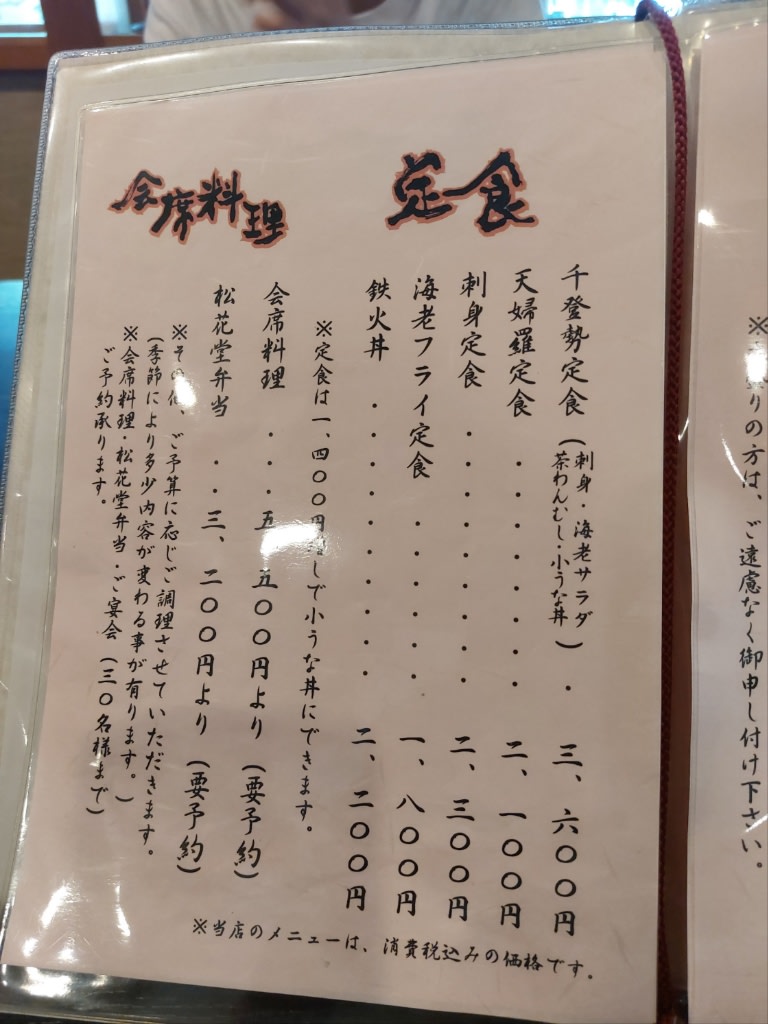 ※
りの方は、ご遠慮なく御申し付け下さい。
定食
千登勢定食(刺身・海老サラダ
茶わんむし・小うな丼)・三、六〇〇円
天婦羅定食・・・・・・・・二、一〇〇円
刺身定食・・・・・・・・・二、三〇〇円
海老フライ定食・・・・・・一、八〇〇円
鉄火丼・・・・・・・・・・二、二〇〇円
※定食は一、四〇〇円増しで小うな丼にできます。
会席料理
会席料理・・・五、五〇〇円より(要予約)
松花堂弁当・・三、二〇〇円より(要予約)
※その他、ご予算に応じご調理させていただきます。
(季節により多少内容が変わる事が有ります。)
※会席料理・松花堂弁当・ご宴会(三〇名様まで)
ご予約承ります。
※当店のメニューは、消費税込みの価格です。